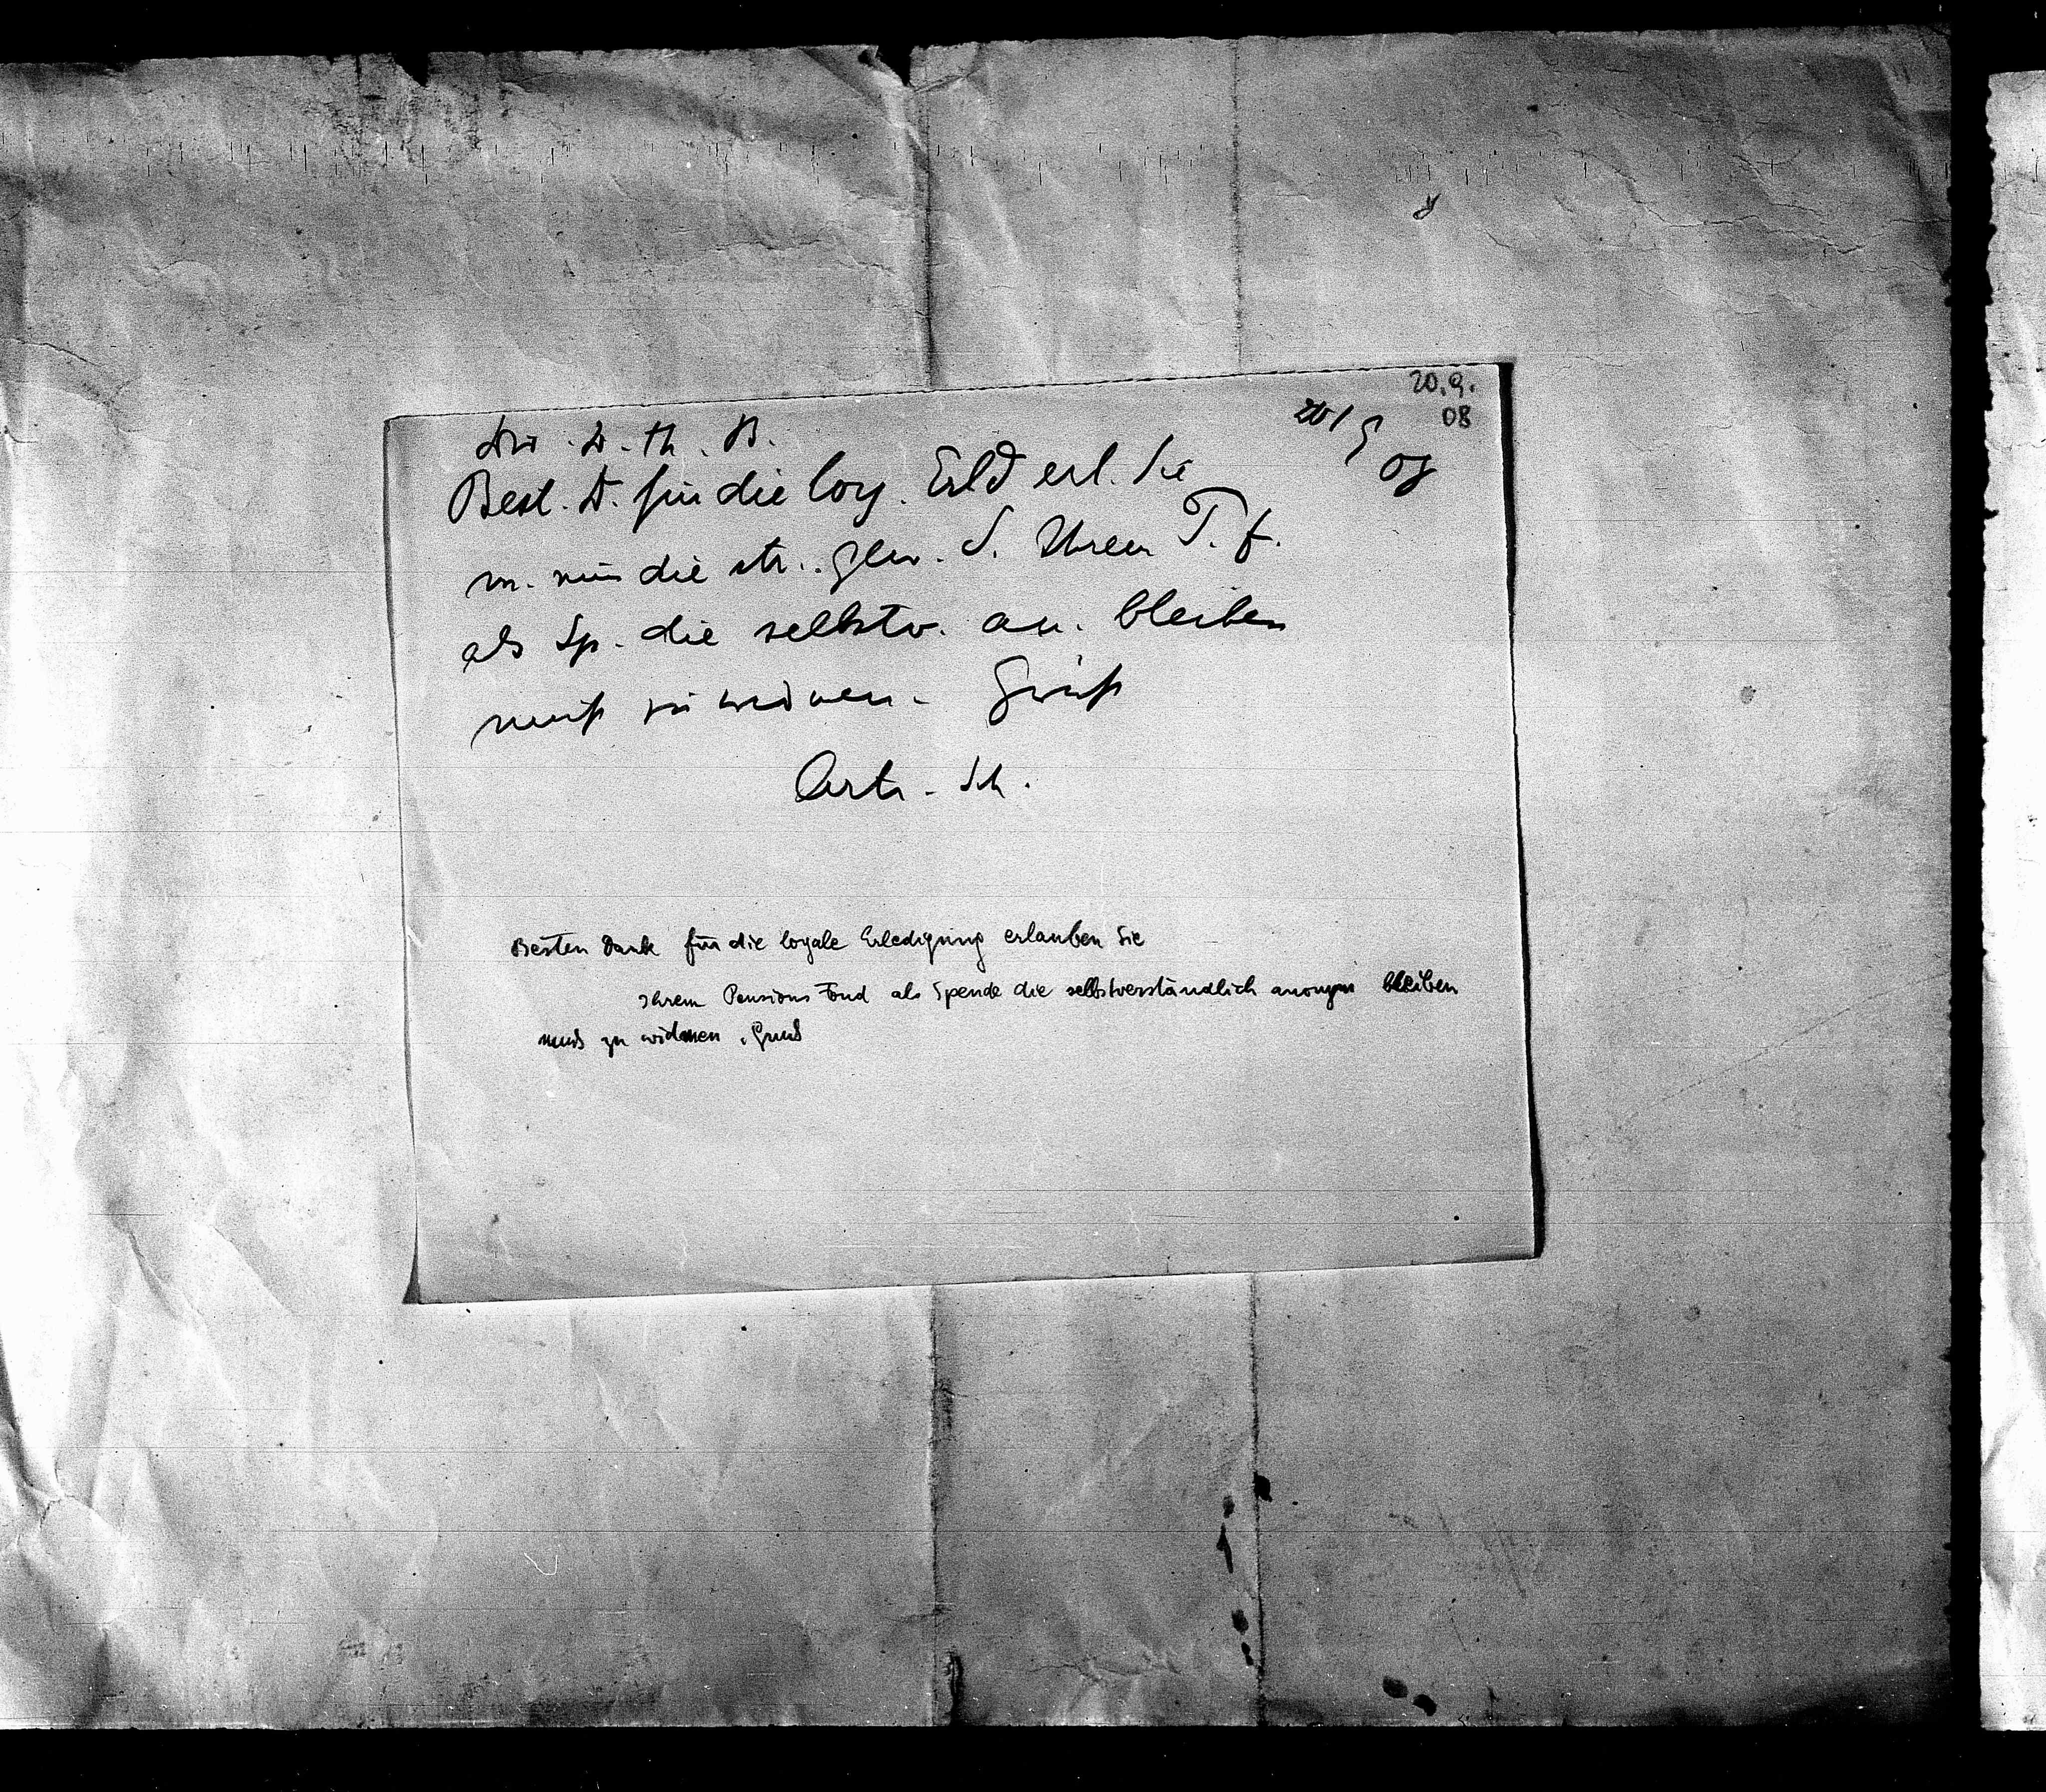 20.9.
08
20/9
08
Dir. D. th. B.
Best. D. für die loy. Erled erl. Sie
m. nur die str. gew. S. Ihrem P. f.
als Sp. die selbstv. an. bleiben
muß zu widmen. Gruß
Arth. Sch.
Besten Dank für die loyale Erledigung erlauben Sie
Ihrem Pensions Fond als Spende die selbstverständlich anonym bleiben
muß zu widmen. Gruß